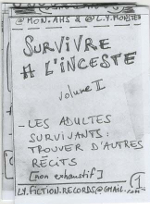 @MON.AHS & @L.Y.MONSTER
SURVIVRE
A L'INCESTE
volume II
- LES ADULTES
SURVIVANTS :
TROUVER D'AUTRES
RÉCITS
[non exhaustif]
LY.FICTION.RECORDS@GMAIL.
1